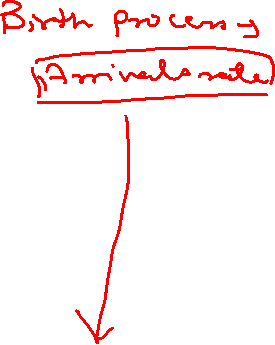 Birth process →
"Arrivals rate